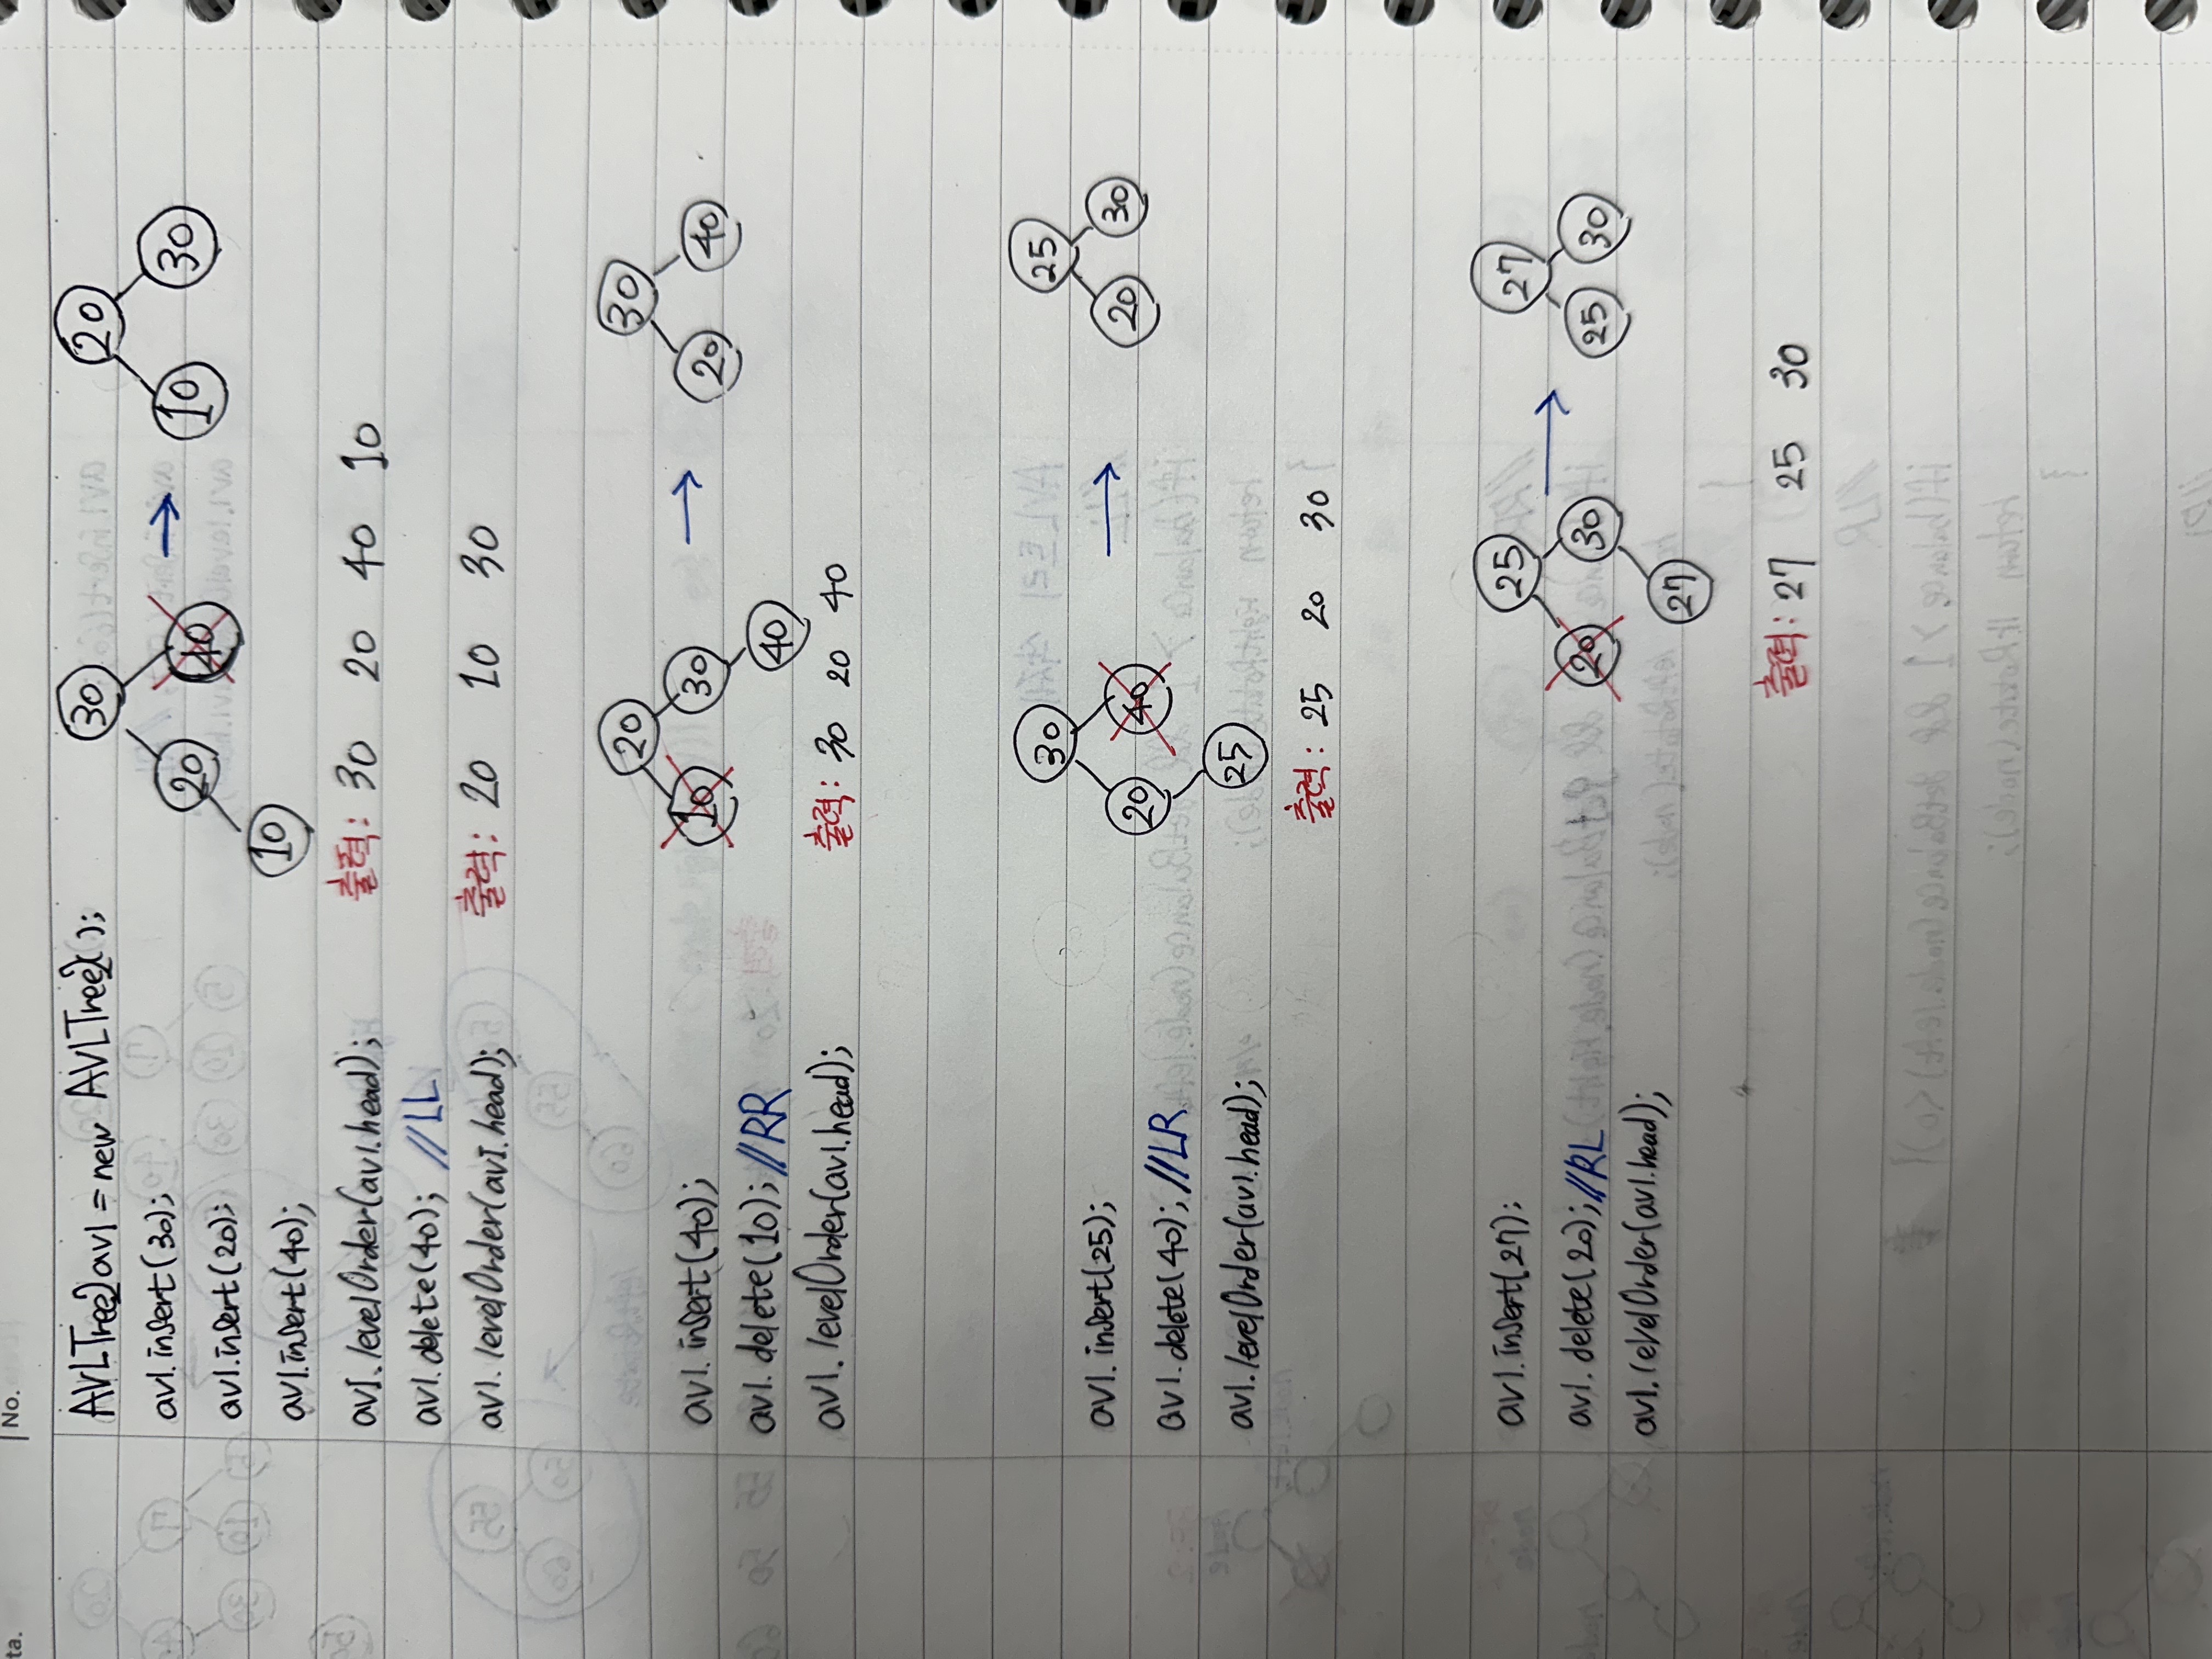 ta. No.
AVLTree2 avl = new AVLTree2();
avl.insert(30);
avl.insert(20);
avl.insert(40);
30
20 40
10
20
10 30
avl.levelOrder(avl.head); 출력: 30 20 40 10
avl.delete(40); //LL
avl.levelOrder(avl.head); 출력: 20 10 30
20
10 30
40
30
20 40
avl.insert(40);
avl.delete(10); //RR
avl.levelOrder(avl.head); 출력: 30 20 40
30
20 40
25
25
20 30
avl.insert(25);
avl.delete(40); //LR
avl.levelOrder(avl.head);
출력: 25 20 30
25
20 30
27
27
25 30
avl.insert(27);
avl.delete(20); //RL
avl.levelOrder(avl.head);
출력: 27 25 30